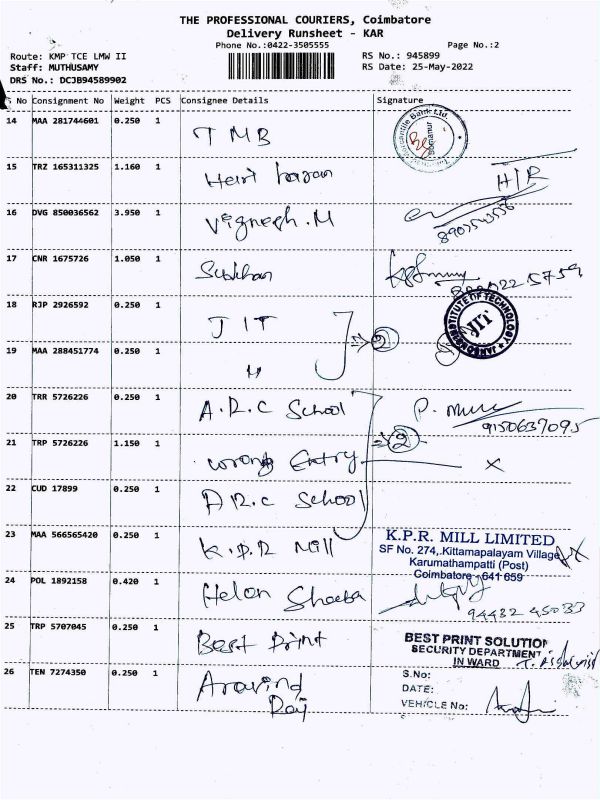 THE PROFESSIONAL COURIERS, Coimbatore
Delivery Runsheet - KAR
Phone No.:0422-3505555
Page No.:2
Route: KMP TCE LMW II
RS No.: 945899
Staff: MUTHUSAMY
RS Date: 25-May-2022
DRS No.: DCJB94589902
S No Consignment No Weight PCS Consignee Details Signature
14 MAA 281744601 0.250 1 TMB
15 TRZ 165311325 1.160 1 Hari haran H/R
16 DVG 850036562 3.950 1 Vignesh.M
17 CNR 1675726 1.050 1 Subhan
18 RJP 2926592 0.250 1 JIT
INSTITUTE OF TECHNOLOGY
JIT
19 MAA 288451774 0.250 1 "
20 TRR 5726226 0.250 1 A.R.C School
9150637095
21 TRP 5726226 1.150 1 Wrong Entry X
22 CUD 17899 0.250 1 A R.C School
23 MAA 566565420 0.250 1 K.P.R Mill
K.P.R. MILL LIMITED
SF No. 274, Kittamapalayam Village
Karumathampatti (Post)
Coimbatore - 641 659
24 POL 1892158 0.420 1 Helon Sheeba
94432 45033
25 TRP 5707045 0.250 1 Best Print
BEST PRINT SOLUTION
SECURITY DEPARTMENT
IN WARD
26 TEN 7274350 0.250 1 Aravind
Raj
S.No:
DATE:
VEHICLE No: